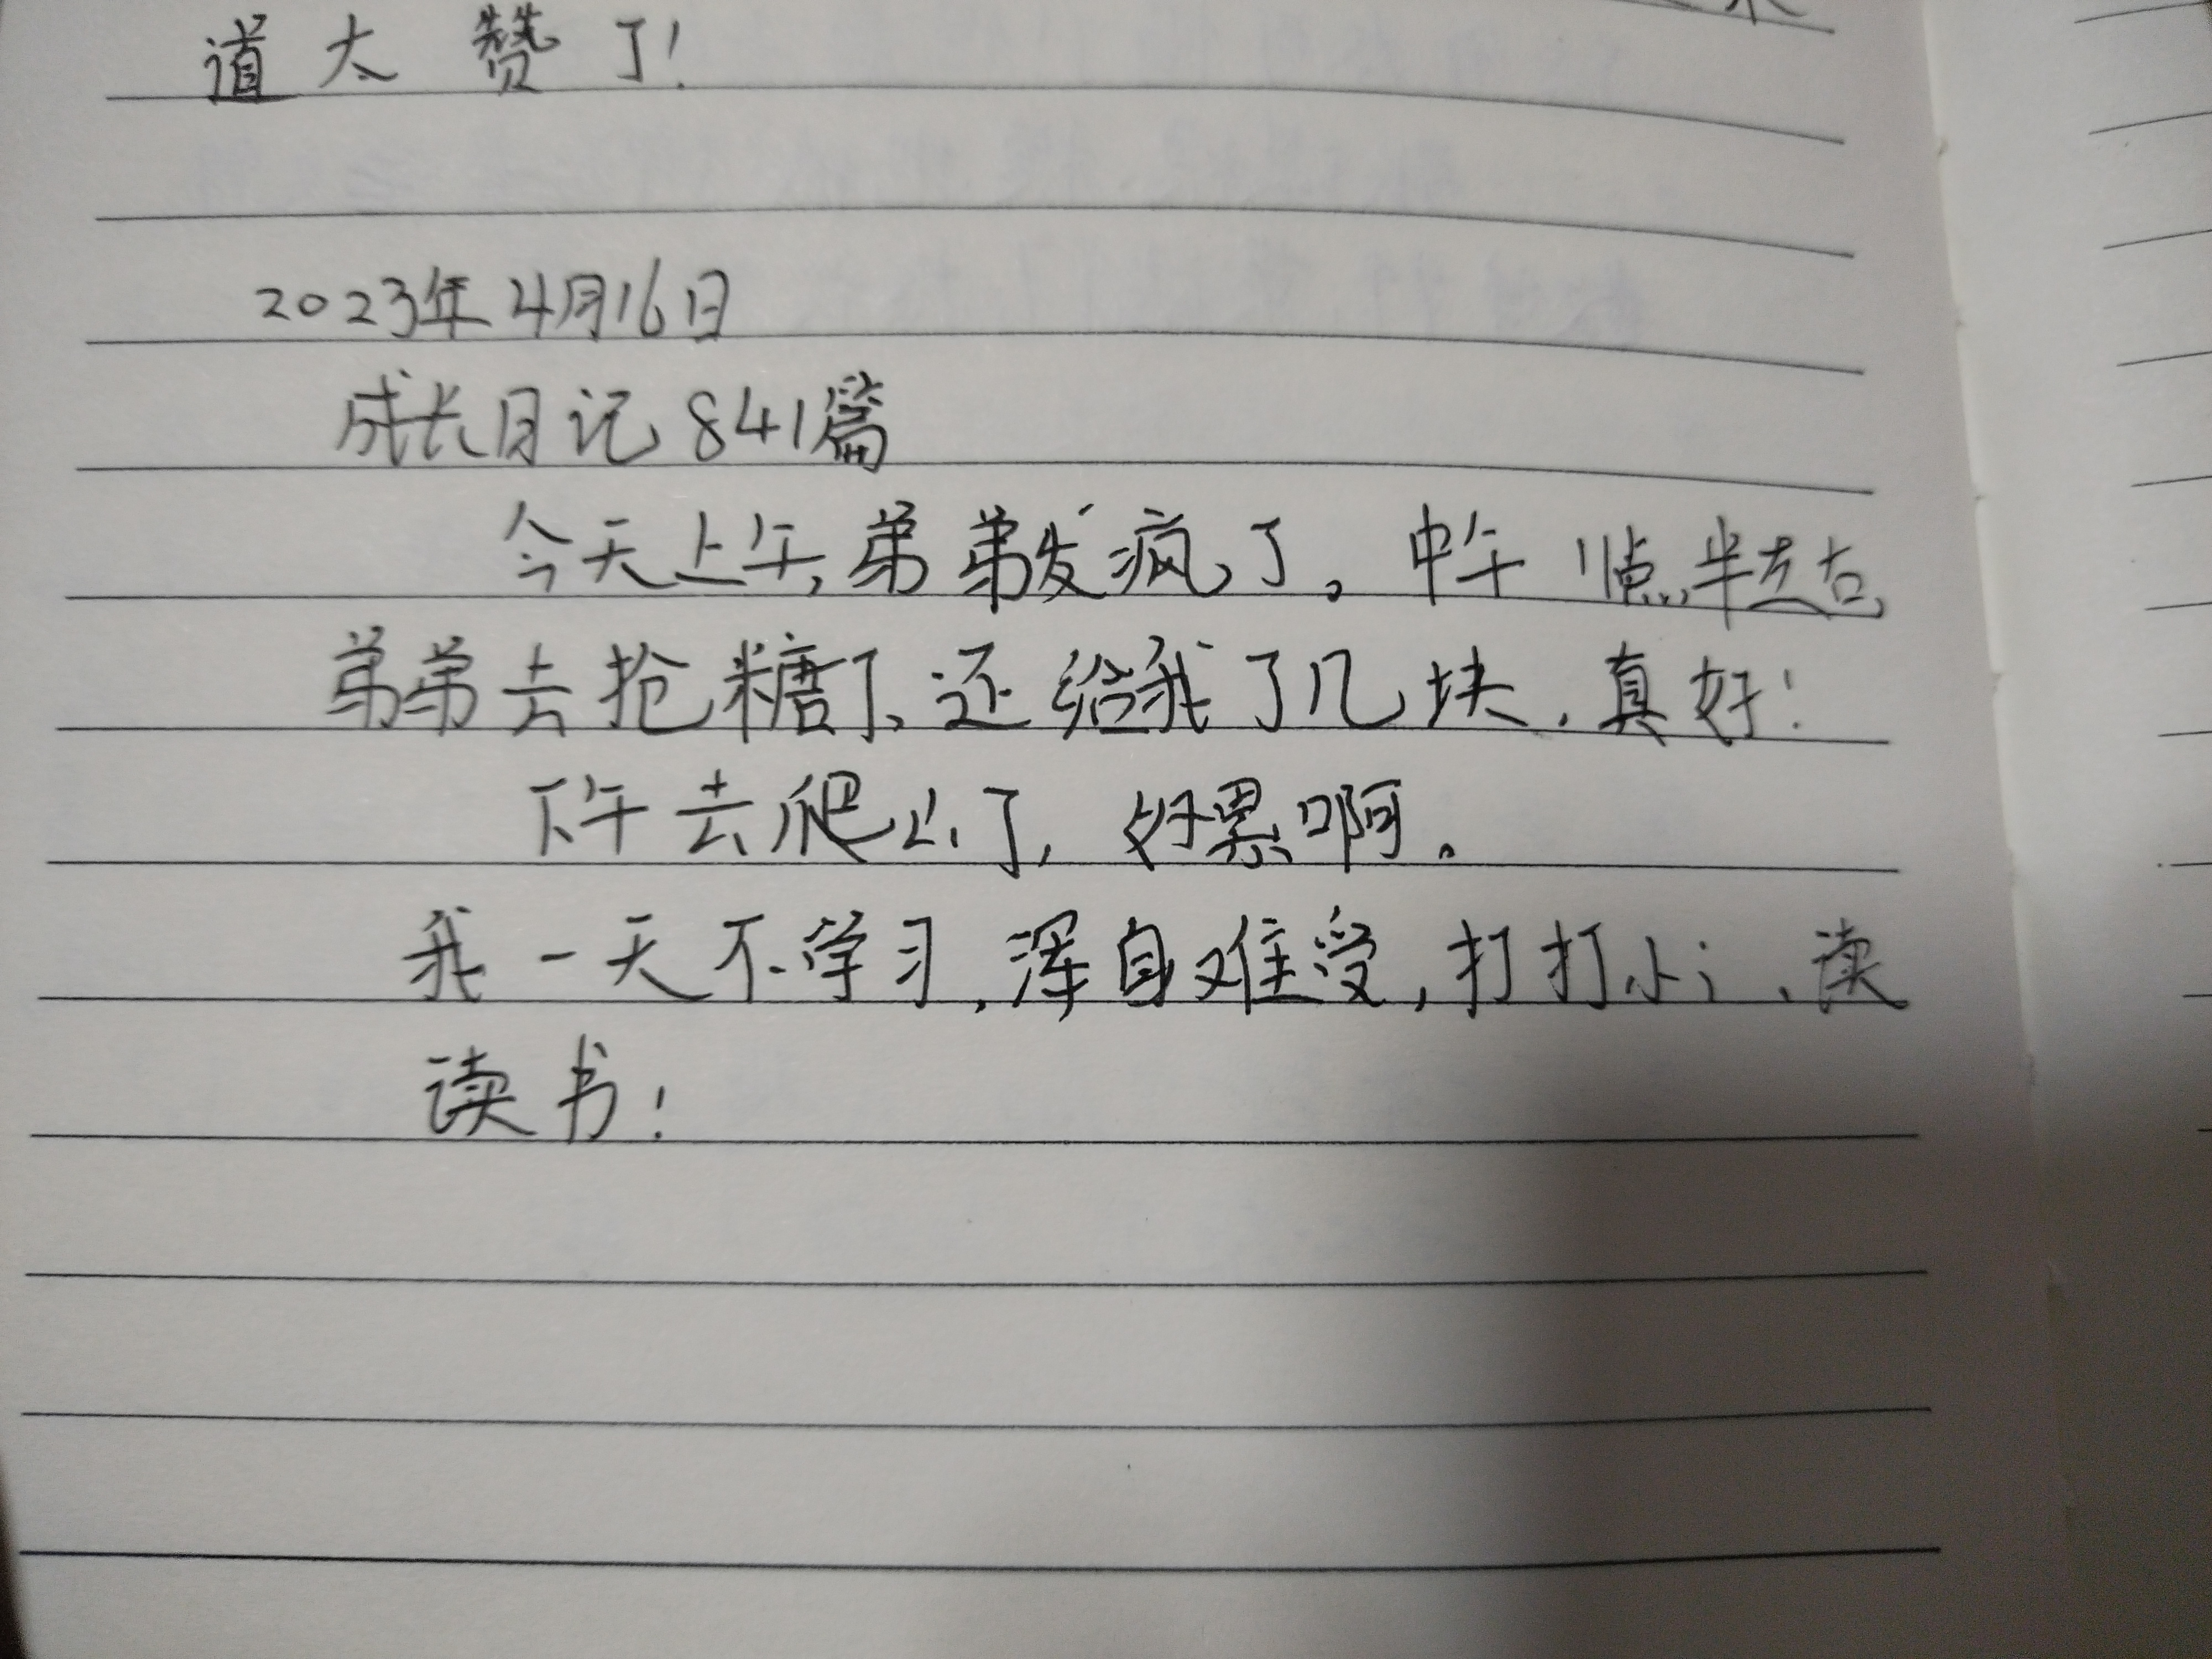 道太赞了!
2023年4月16日
成长日记841篇
今天上午,弟弟发疯了。中午11点半左右,
弟弟去抢糖了,还给我了几块,真好!
下午去爬山了,好累啊。
我一天不学习,浑自难受,打打小、读
读书!